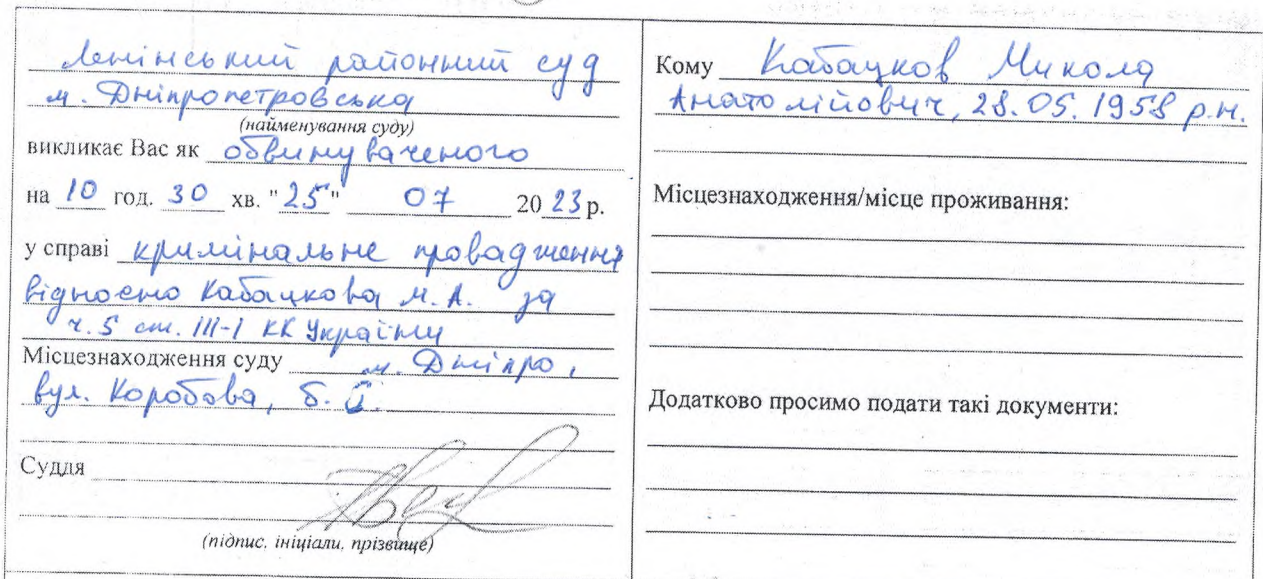 Ленінський районний суд
м. Дніпропетровська
(найменування суду)
викликає Вас як обвинуваченого
на 10 год. 30 хв. "25" 07 2023 р.
у справі кримінальне провадження
відносно Кабацкова М.А. за
ч. 5 ст. 111-1 КК України
Місцезнаходження суду м. Дніпро,
вул. Коробова, б.
Суддя
(підпис, ініціали, прізвище)
Кому Кабацков Микола
Анатолійович, 28.05.1958 р.н.
Місцезнаходження/місце проживання:
Додатково просимо подати такі документи: